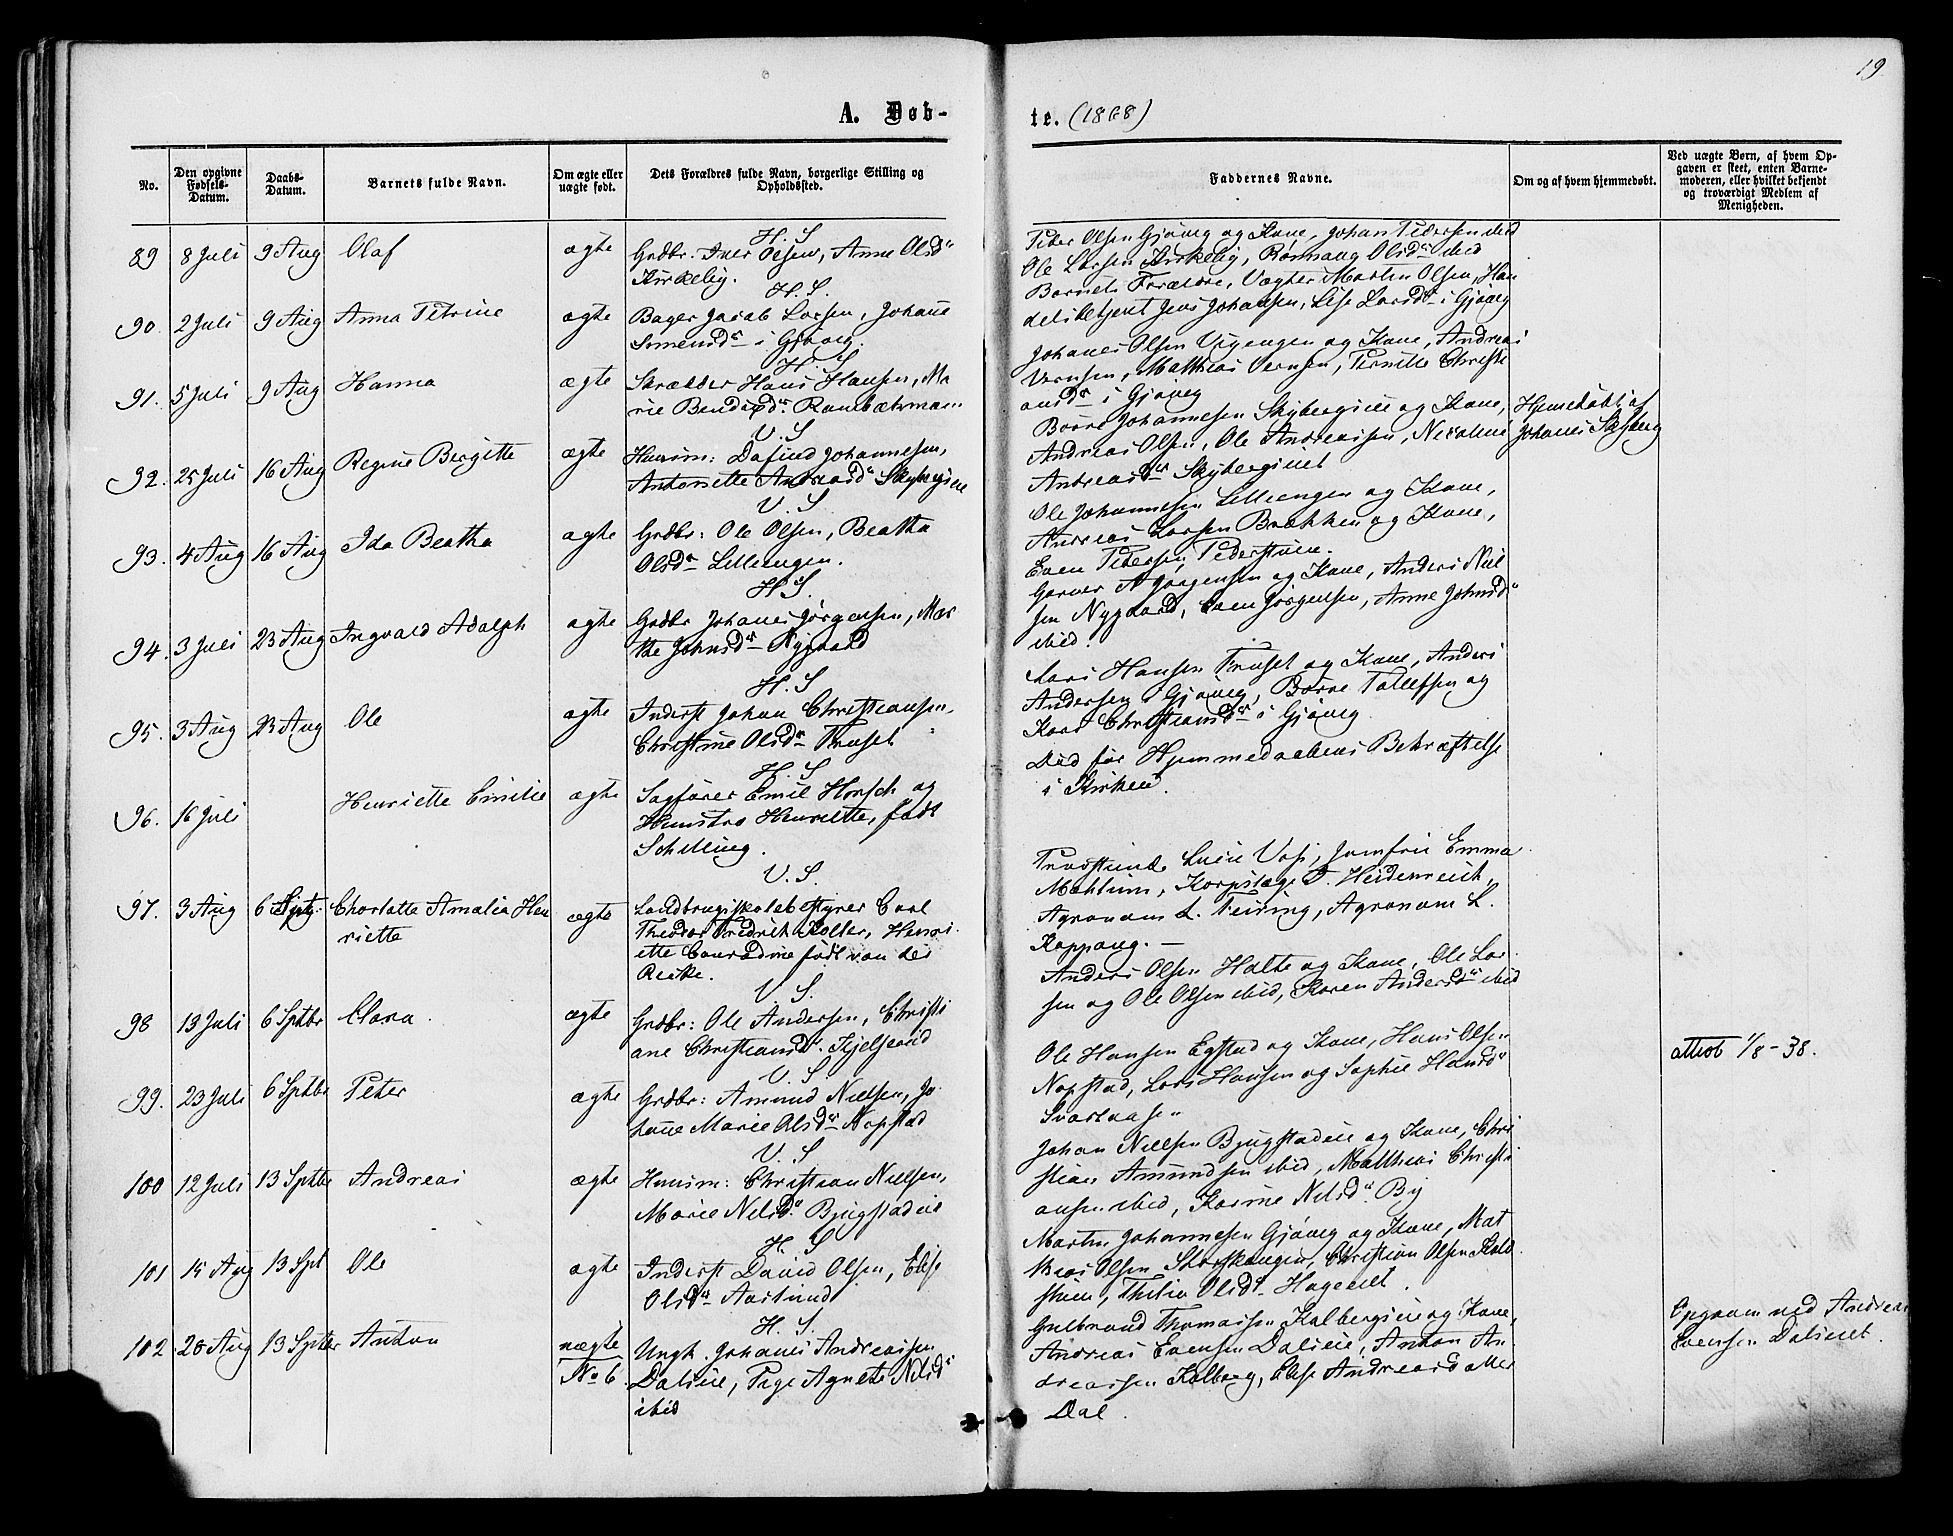 19
A. Døb-
te. (1868)
No.
Den opgivne Fødsels-Datum.
Daabs-Datum.
Barnets fulde Navn.
Om ægte eller uægte født.
Dets Forældres fulde Navn, borgerlige Stilling og Opholdssted.
Faddernes Navne.
Om og af hvem hjemmedøbt.
Ved uægte Børn, af hvem Opgaven er skeet, enten Barnemoderen, eller hvilket bekjendt og troværdigt Medlem af Menigheden.
H. S
89 8 Juli 9 Aug Olaf ægte Grdbr. Iver Olsen, Anne Olsdr
Kirkeby.
Peter Olsen Gjøvig og Kone, Johan Pedersen ibid
Ole Larsen Kirkeby, Rønnaug Olsdr ibid
H. S.
90. 2 Juli 9 Aug Anna Petrine ægte Bager Jacob Larsen, Johane
Simensdr i Gjøvig.
Barnets Forældre, Vægter Martin Olsen, Han
delsbetjent Jens Johansen, Lise Larsdr i Gjøvig
H. S
91. 5 Juli 9 Aug Hanna ægte Skrædder Hans Hansen, Ma
rie Bendixdr.
Johanes Olsen Vigengen og Kone, Andreas
Versen, Matthias Versen, Pernille Christi
ansdr i Gjøvig
V. S
92. 25 Juli 16 Aug Regine Birgitte ægte Huusm: Dafind Johannesen,
Antonette Andreasdr Skybergeie
Børre Johannesen Skybergeie og Kone,
Andreas Olsen, Ole Andreassen, Nicoline
Andreasdr Skybergeiet
Hjemedøbt af
Johanes Skyberg
V. S
93. 4 Aug 16 Aug Ida Beatha ægte Grdbr: Ole Olsen, Beatha
Olsdr Lilleengen.
Ole Johannesen Lilleengen og Kone,
Andreas Larsen Brækken og Kone,
Even Petersen Pederstuen.
H. S.
94. 3 Juli 23 Aug Ingvald Adolph ægte Grdbr Johanes Jørgensen, Mar
the Johnsdr Nygaard
Garver A Jørgensen og Kone, Anders Niel
sen Nygaard, Even Jørgensen, Anne Johnsdr
ibid.
H. S
95. 3 Aug 23 Aug Ole ægte Inderst Johan Christiansen,
Christine Olsdr Truset
Lars Hansen Truset og Kone, Anders
Andersen i Gjøvig, Børre Tollefsen og
Kari Christiansdr i Gjøvig
H. S
96. 16 Juli Henriette Emilie ægte Sagfører Emil Horsch og
Hustro Henriette, født
Schilling.
Død før Hjemmedaabens Bekræftelse
i Kirken.
V. S.
97. 3 Aug 6 Sptr. Charlotte Amalia Hen
riette ægte Landbrugsskolebestyrer Carl
Theodor Fredrik Kolter, Henri
ette Conradine født von der
Recke.
Provstinde Lucie Vosz, Jomfru Emma
Korpslæge T. Heidenreich,
Agronom L. Teiring, Agronom L.
Koppang. —
V. S.
98 13 Juli 6 Sptbr Clara. ægte Grdbr: Ole Andersen, Christi
ane Christiansdr. Kjelserud
Anders Olsen Holte og Kone, Ole Lar
sen og Ole Olsen ibid, Karen Andersdr ibid
V. S.
99. 23 Juli 6 Sptbr Peter ægte Grdbr: Amund Nielsen, Jo
hanne Marie Olsdr Nopstad
Ole Hansen Egstad og Kone, Hans Olsen
Nopstad, Lars Hansen og Sophie Hansdr
Svartaasen
attest 1/8 - 38.
V. S
100 12 Juli 13 Sptbr Andreas ægte Huusm: Christian Nielsen,
Marie Nilsdr. Bjugstadeie
Johan Nielsen Bjugstadeie og Kone, Chri
stian Amundsen ibid, Matthias Christi
ansen ibid, Karine Nilsdr. By
H. S
101 15 Aug 13 Spt Ole ægte Inderst David Olsen, Elise
Olsdr Aaslund
Martin Johannesen Gjøvig og Kone, Mat
hias Olsen Storskaugen, Christian Olsen Kold
stuen, Thilia Olsdr Hageeiet.
H. S.
102. 20 Aug 13 Sptbr Anton uægte
No 6. Ungk. Johanes Andreassen
Daleie, Pige Agnethe Nilsdr
ibid
Gulbrand Thomassen Kalbergeie og Kone,
Andreas Evensen Daleie, Anton An
dreassen Kolberg, Elise Andreasd
Dal.
Opgaven ved Andreas
Evensen Daleiet.